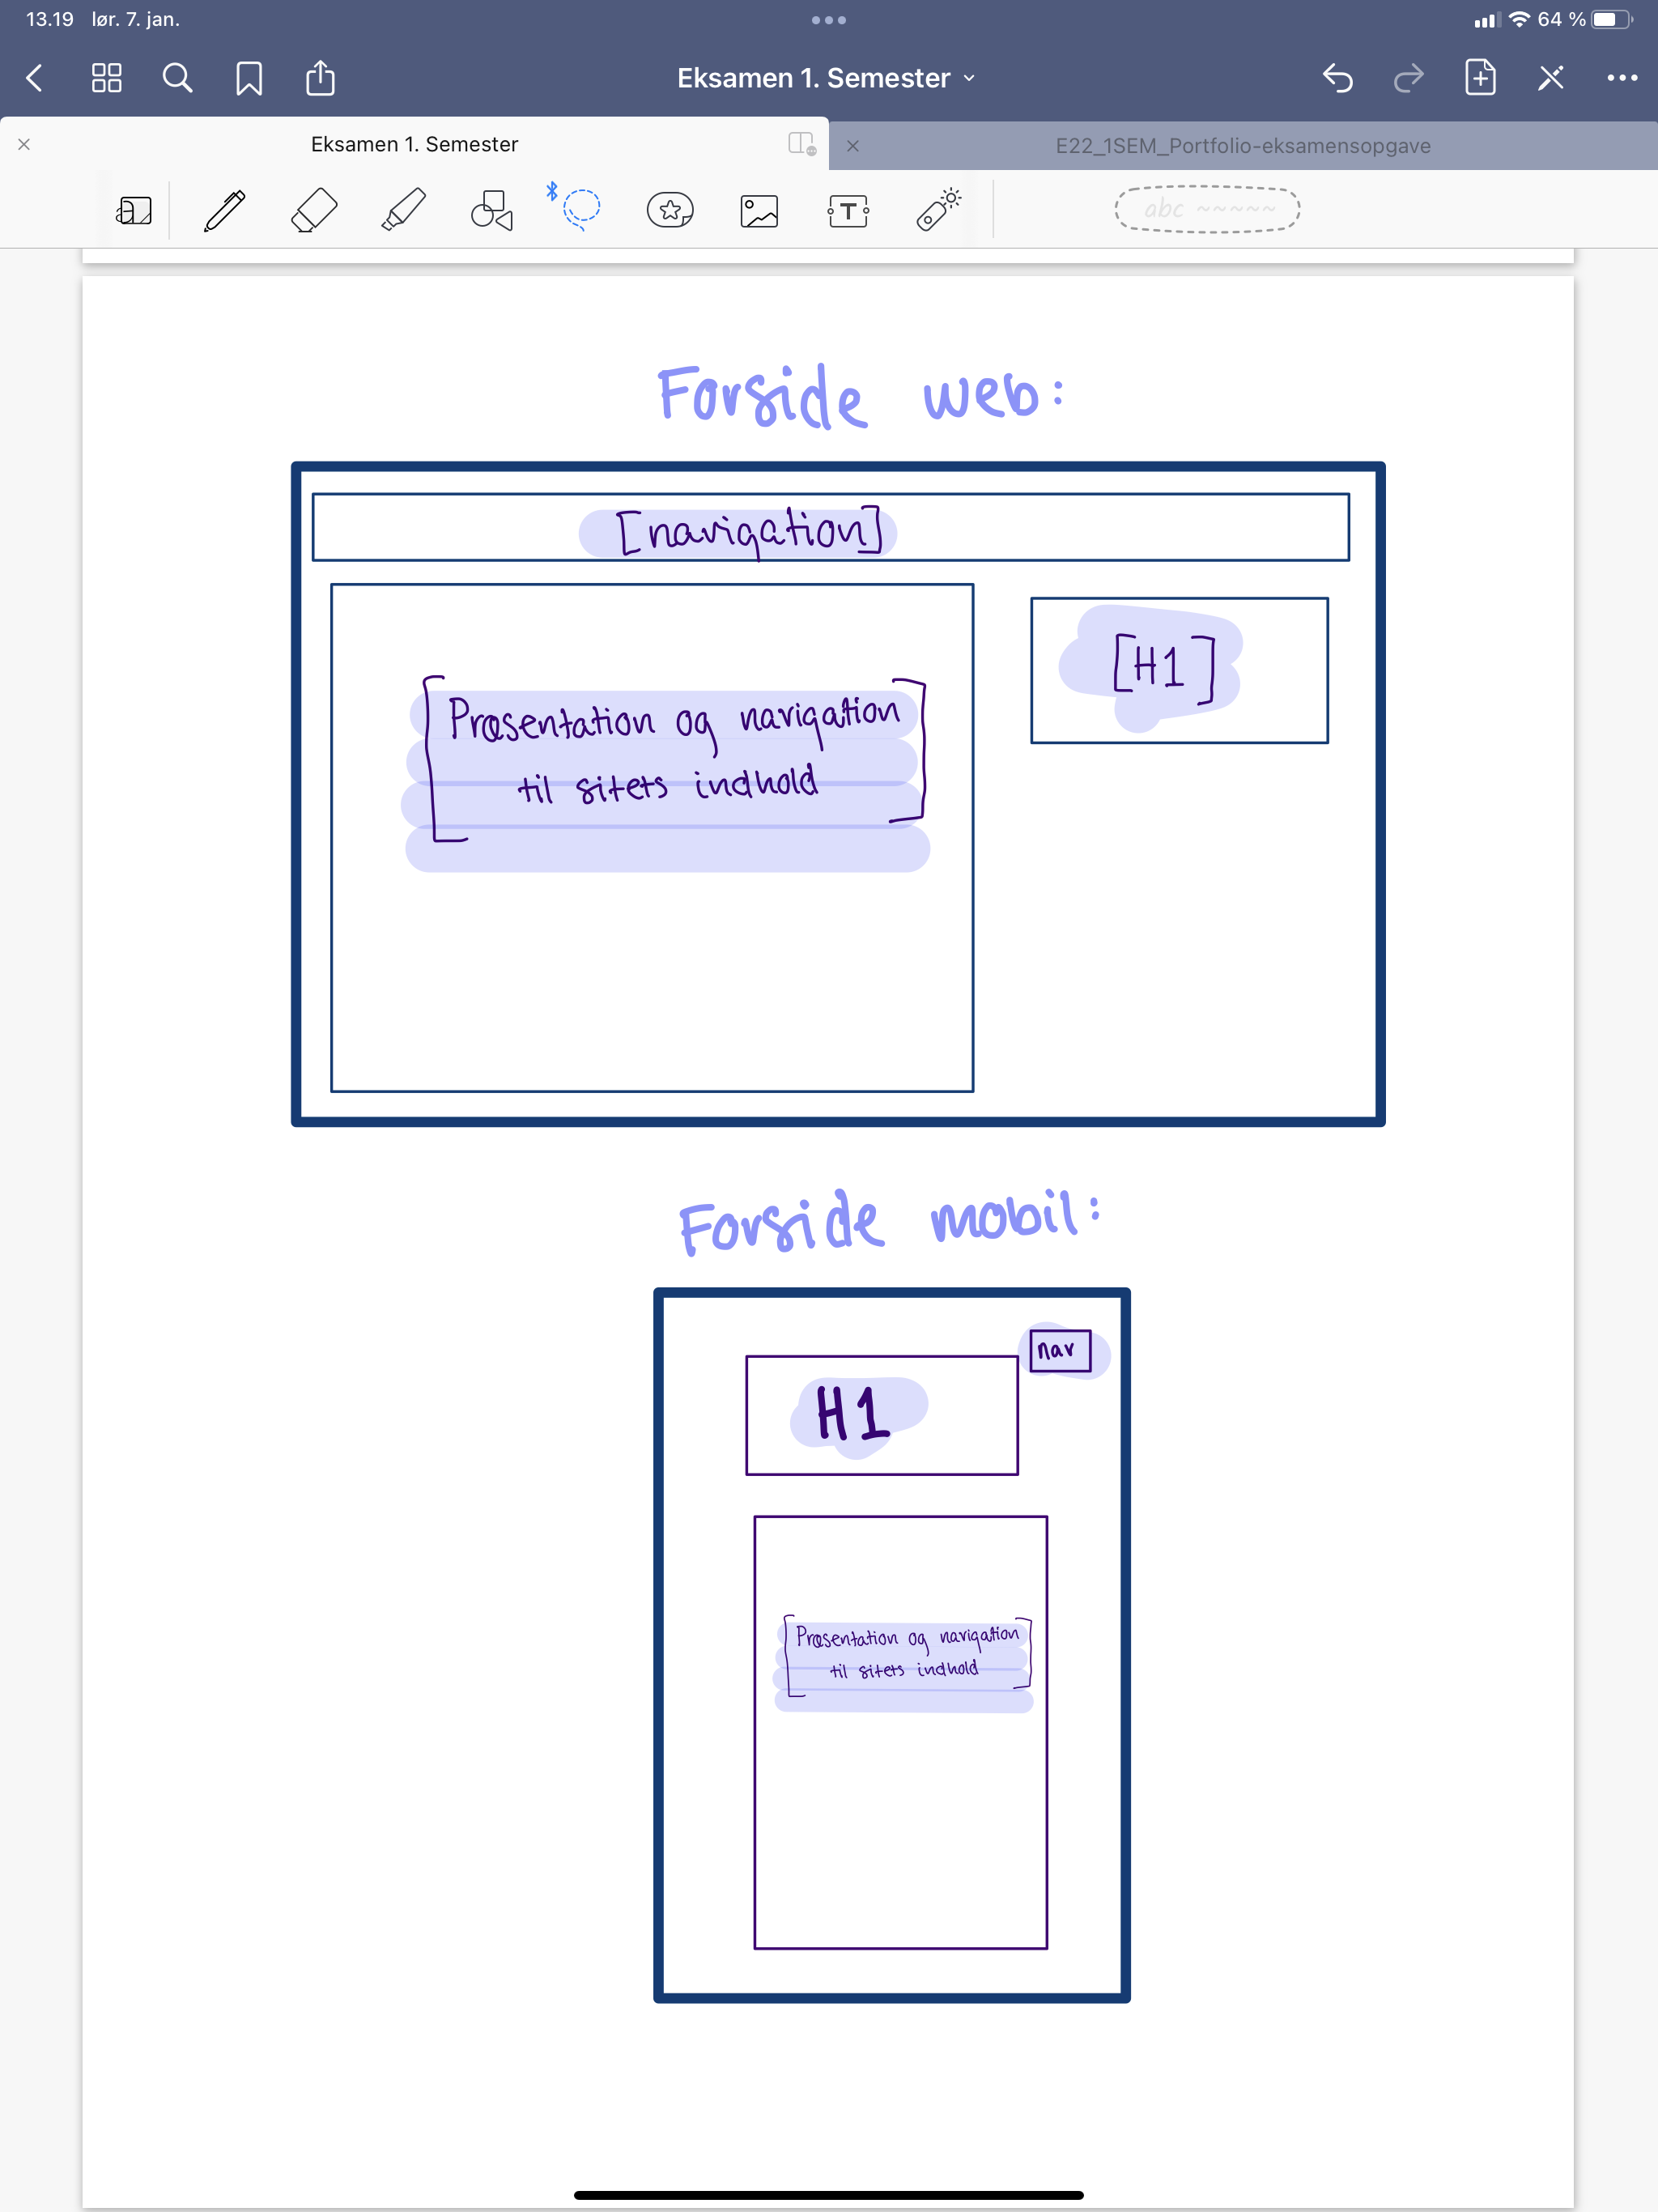 13.19 lør. 7. jan.
64 %
Eksamen 1. Semester
Eksamen 1. Semester
E22_1SEM_Portfolio-eksamensopgave
T
abc
Forside web:
[navigation]
[Præsentation og navigation
til sitets indhold]
[H1]
Forside mobil:
nav
H1
[Præsentation og navigation
til sitets indhold]